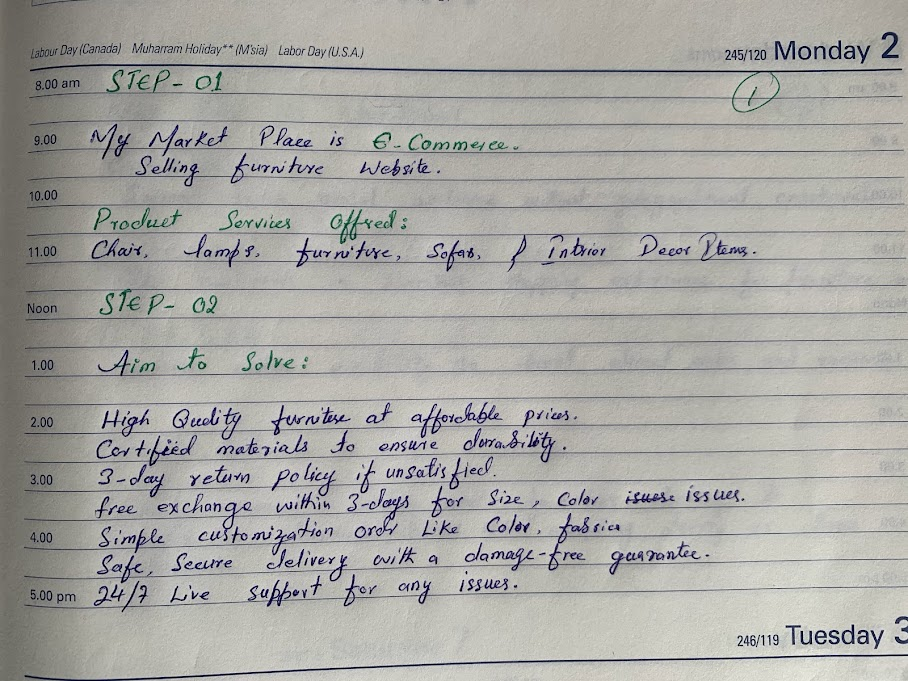 Labour Day (Canada) Muharram Holiday** (M'sia) Labor Day (U.S.A.)
245/120 Monday 2
8.00 am STEP - 01
1
9.00 My Market Place is E-Commerce.
Selling furniture Website.
10.00
Product Services Offred:
11.00 Chair, lamps, furniture, Sofas, & Interior Decor Items.
Noon STEP - 02
1.00 Aim to Solve:
2.00 High Quality furniture at affordable prices.
Certified materials to ensure durability.
3.00 3-day return policy if unsatisfied.
free exchange within 3-days for Size, Color isuese issues.
4.00 Simple customization order Like Color, fabrics
Safe, Secure delivery with a damage-free guarantee.
5.00 pm 24/7 Live support for any issues.
246/119 Tuesday 3